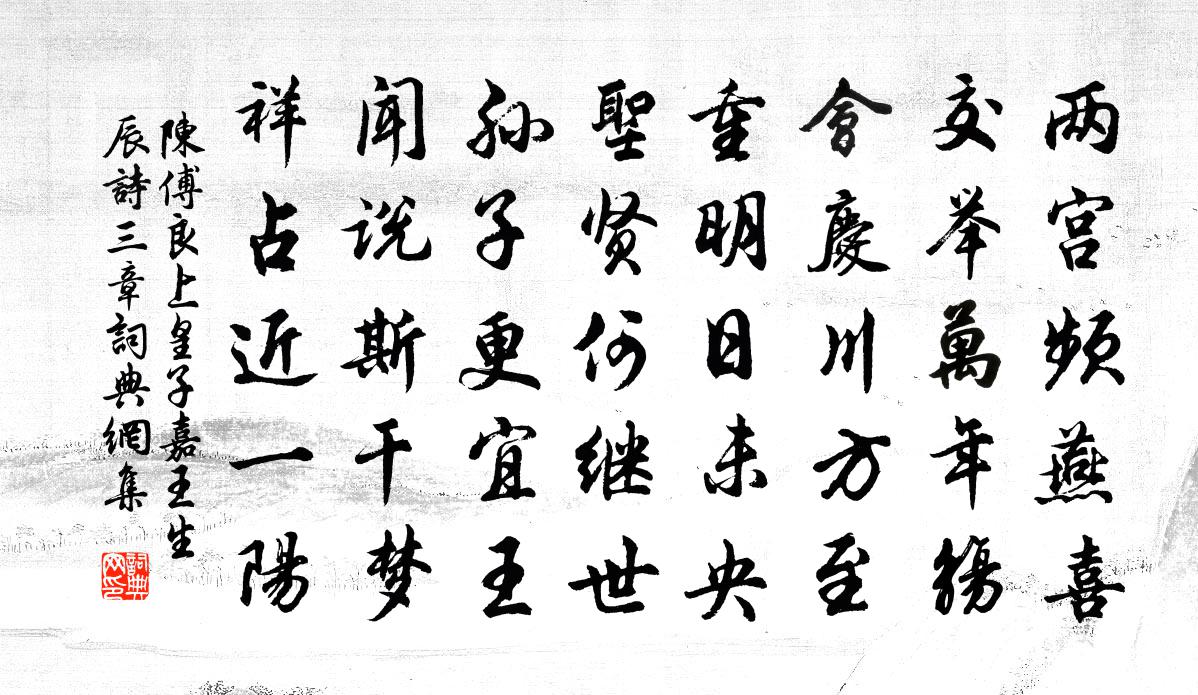 两宫频燕喜
交举萬年觞
會慶川方至
重明日未央
聖贤何继世
孙子更宜王
闻说斯干梦
祥占近一陽
陳傅良上皇子嘉王生
辰詩三章詞典網集
詞典網印